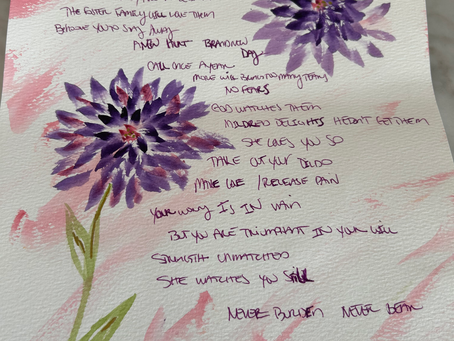 The Foster Family will love them
Behoove you to stay away
A new hunt brand new
Day
Call once a year
More will bring too many tears
No fears
God watches them
Mildred delights he don't get them
She loves you so
Take out your dildo
Make love / release pain
Your worry is in vain
But you are triumphant in your will
Strength unmatched
She watches you still
Never burden never bear